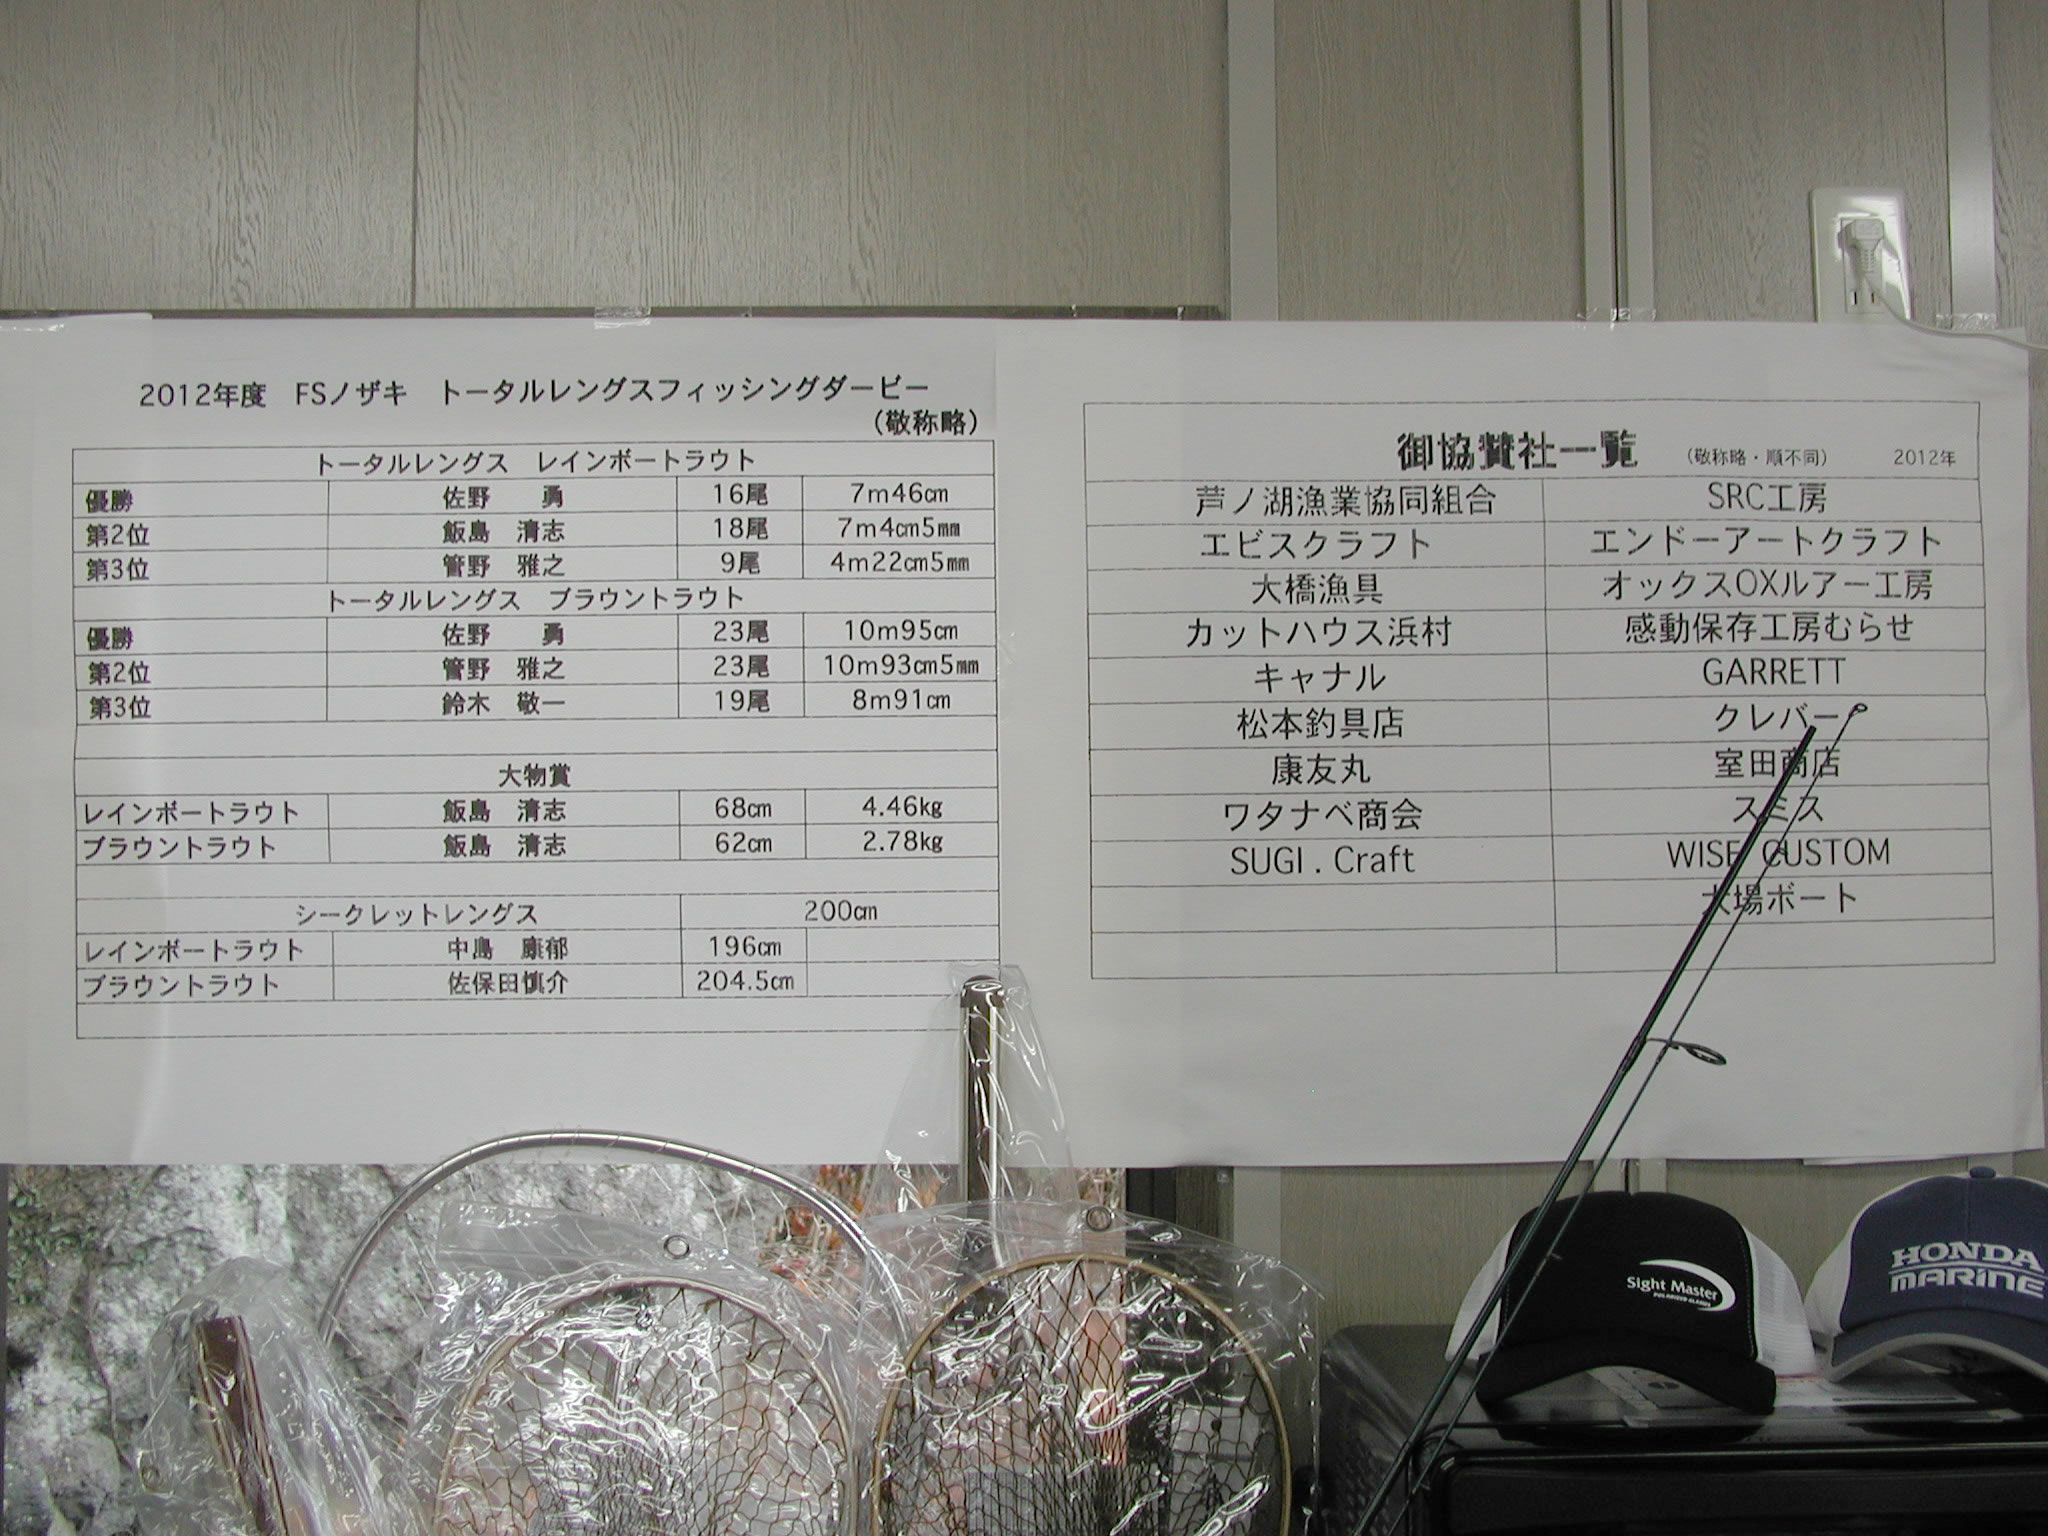 2012年度 FSノザキ トータルレングスフィッシングダービー
（敬称略）
トータルレングス レインボートラウト
優勝 佐野 勇 16尾 7m46㎝
第2位 飯島 清志 18尾 7m4㎝5㎜
第3位 管野 雅之 9尾 4m22㎝5㎜
トータルレングス ブラウントラウト
優勝 佐野 勇 23尾 10m95㎝
第2位 管野 雅之 23尾 10m93㎝5㎜
第3位 鈴木 敬一 19尾 8m91㎝
大物賞
レインボートラウト 飯島 清志 68㎝ 4.46㎏
ブラウントラウト 飯島 清志 62㎝ 2.78㎏
シークレットレングス 200㎝
レインボートラウト 中島 康郁 196㎝
ブラウントラウト 佐保田慎介 204.5㎝
御協賛社一覧 （敬称略・順不同） 2012年
芦ノ湖漁業協同組合 SRC工房
エビスクラフト エンドーアートクラフト
大橋漁具 オックスOXルアー工房
カットハウス浜村 感動保存工房むらせ
キャナル GARRETT
松本釣具店 クレバー
康友丸 室田商店
ワタナベ商会 スミス
SUGI . Craft WISE CUSTOM
大場ボート
Sight Master
POLARIZED GLASSES
HONDA
MARINE